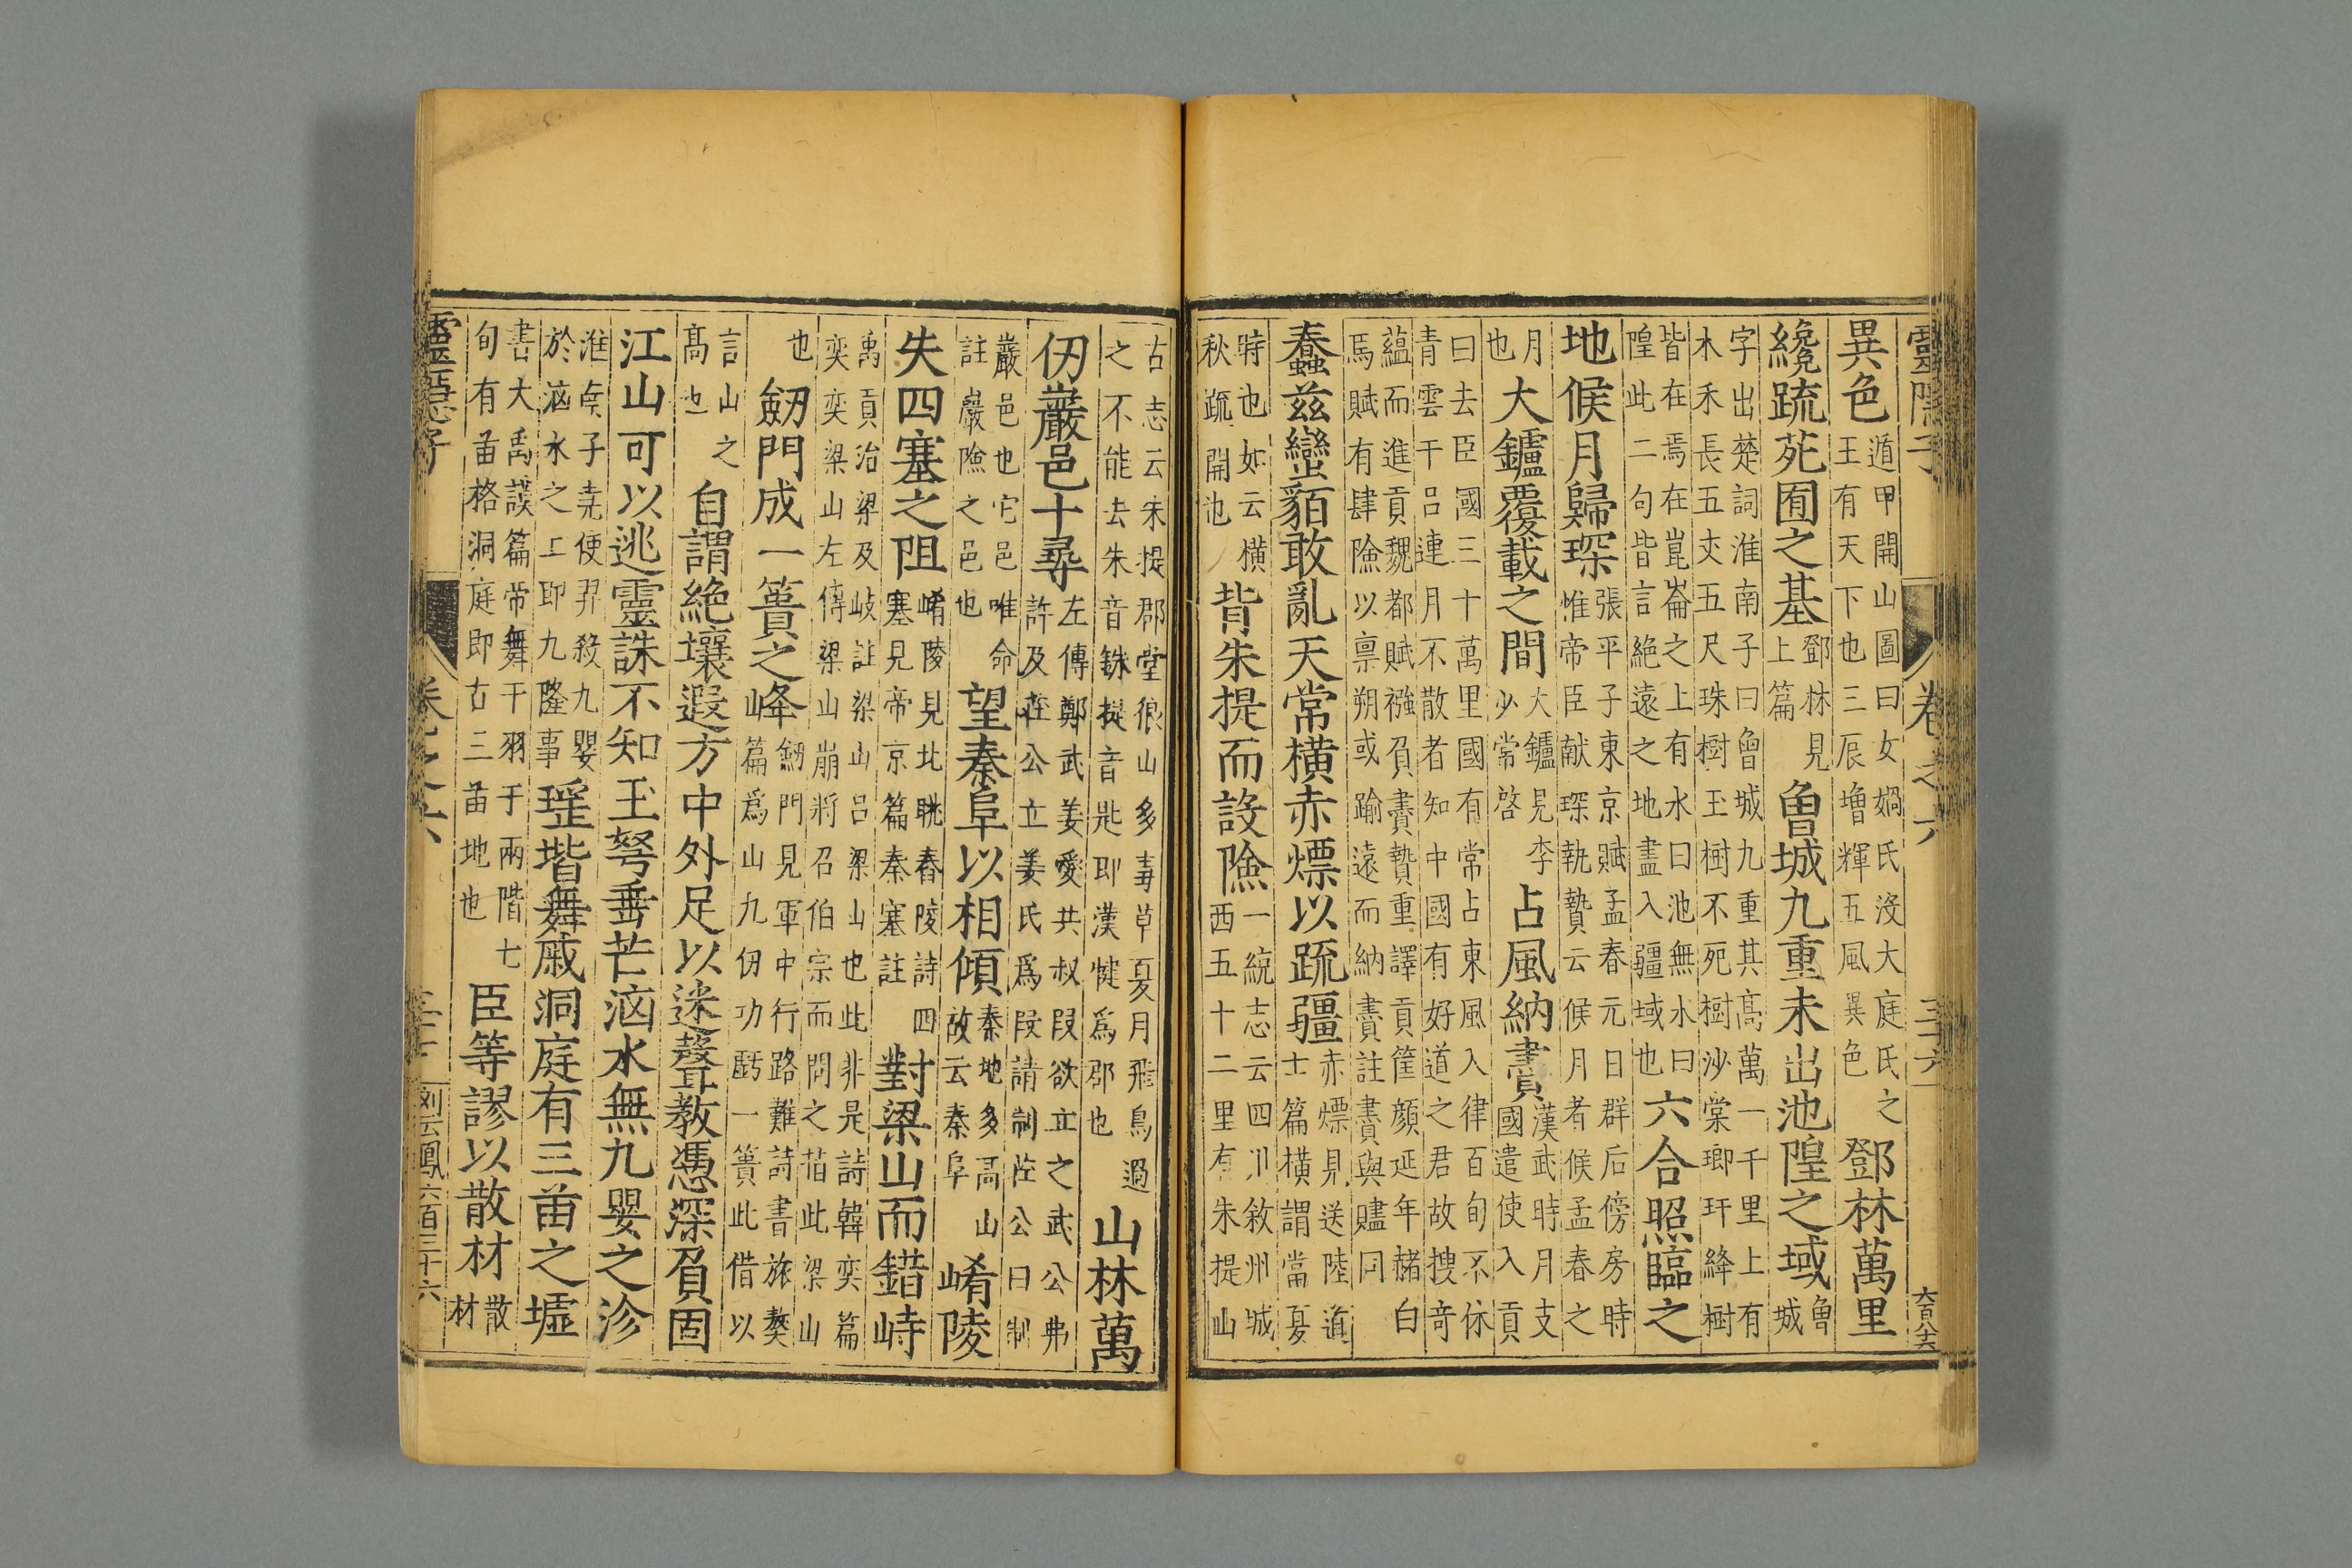 靈隱子 卷之六 三十六 六百八十六
異色 遁甲開山圖曰女媧氏沒大庭氏之
王有天下也三辰增輝五風異色 鄧林萬里
纔疏苑囿之基 鄧林見
上篇 曾城九重未出池隍之域 曾
城
字出楚詞淮南子曰曾城九重其高萬一千里上有
木禾長五丈五尺珠樹玉樹不死樹沙棠琅玕絳樹
皆在焉在崑崙之上有水曰池無水曰
隍此二句皆言絕遠之地盡入疆域也 六合照臨之
地候月歸琛 張平子東京賦孟春元日群后傍房時
惟帝臣献琛執贄云候月者候孟春之
月
也 大鑪覆載之間 大鑪見李
少常啓 占風納賮 漢武時月支
國遣使入貢
曰去臣國三十萬里國有常占東風入律百旬不休
青雲干呂連月不散者知中國有好道之君故搜奇
蘊而進貢魏都賦襁負賮贄重譯貢筐顏延年赭白
馬賦有肆險以禀朔或踰遠而納賮註賮與贐同
蠢兹蠻貊敢亂天常横赤熛以疏疆 赤熛見送陸道
士篇横謂當夏
時也如云横
秋疏開也 背朱提而設險 一統志云四川敘州城
西五十二里有朱提山
古志云朱提郡堂狼山多毒草夏月飛鳥過
之不能去朱音銖提音匙即漢犍爲郡也 山林萬
仞嚴邑十尋 左傳鄭武姜愛共叔段欲立之武公弗
許及莊公立姜氏爲段請制莊公曰制
巖邑也它邑唯命
註巖險之邑也 望秦阜以相傾 秦地多高山
故云秦阜 崤陵
失四塞之阻 崤陵見北眺舂陵詩四
塞見帝京篇秦塞註 對梁山而錯峙
禹貢治梁及岐註梁山吕梁山也此非是詩韓奕篇
奕奕梁山左傳梁山崩將召伯宗而問之苖此梁山
也 劒門成一簣之峰 劒門見軍中行路難詩書旅獒
篇爲山九仞功虧一簣此借以
言山之
高也 自謂絶壤遐方中外足以迷聲教憑深負固
江山可以逃靈誅不知玉弩垂芒滷水無九嬰之沴
淮南子尭使羿殺九嬰
於滷水之上即九隆事 瑶堦舞戚洞庭有三苖之墟
書大禹謨篇帝舞干羽于兩階七
旬有苖格洞庭即古三苖地也 臣等謬以散材 散
材
靈隱子 卷之六 刘云鳳 六百三十六